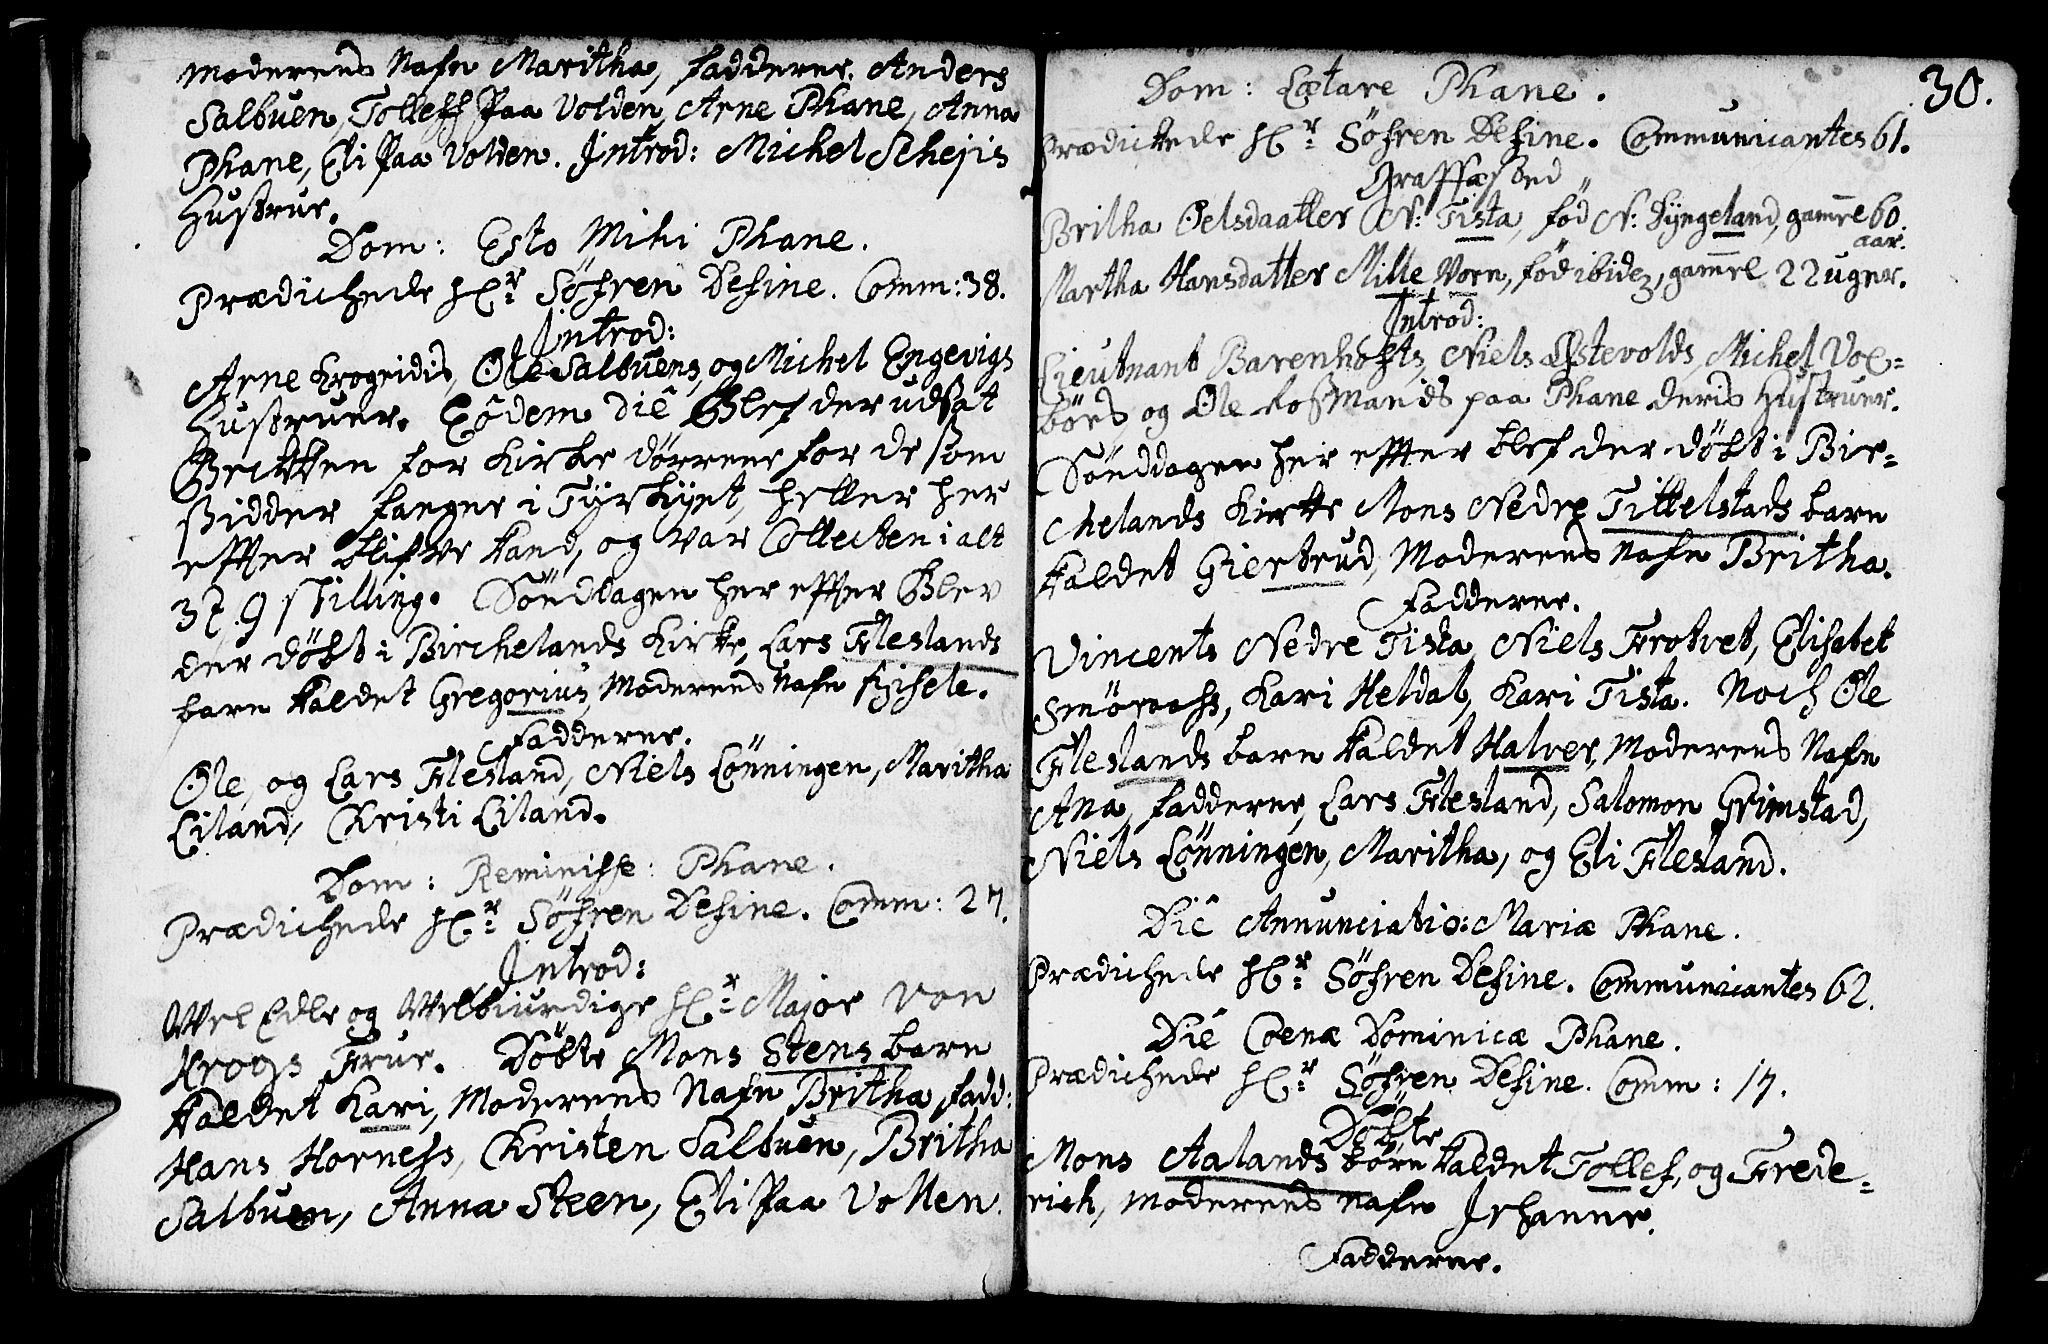 Moderens Nafn Maritha, fadderne. Anders
Salbuen, Tolleff Paa Volden, Arne Phane, Anna
Phane, Eli Paa Volden. Introd: Michel Schejis
Hustrue.
Dom: Esto Mihi Phane.
Prædichede Hr. Söfren Desine. Comm: 38.
Introd:
Arne Krogeidis, Ole Salbuens, og Michel Engevigs
Hustruer. Eôdem Diê Blef der udsat
Becken for Kircke dörrene for de som
sidder fangne i Tÿrkiet, heller her
effter blifve kand, og var Collecten i alt
37. 9 skilling. Sönddagen her effter Blev
der döbt i Birchelands Kirke, Lars Fleslands
barn kaldet Gregorius, Moderens Nafn Sissele.
Fadderne.
Ole, og Lars Flesland, Niels Lönningen, Maritha
Liland, Kristi Liland.
Dom: Reminisse: Phane.
Prædichede Hr. Söfren Desine. Comm: 27.
Introd:
Vel Edle og Velbiurdige Hr. Major Von
Krogs Frue. Döbte Mons Stens barn
kaldet Kari, Moderens Nafn Britha, fadd:
Hans Horness, Kristen Salbuen, Britha
Salbuen, Anna Steen, Eli Paa Vollen.
30.
Dom: Lætare Phane.
Prædickede Hr. Söfren Desine. Communicantes 61.
Graffæsted
Britha Oelsdaatter N: Tista, föd N: Dÿngeland, gamle 60
aar.
Martha Hansdatter Mille Vorn, föd ibidem, gamle 22 uger.
Introd:
Lieutnant Barenhofts, Niels Östevolds, Michel Vox=
börs, og Ole Kossmands paa Phane deris Hustruer.
Sönddagen her effter blef der döbt i Bir=
chelands Kirke Mons Nedre Tittelstads barn
kaldet Giertrud, Moderens Nafn Britha.
Fadderne.
Vincents Nedre Tista, Niels Frotvet, Elisabet
Smöraass, Kari Heldal, Kari Tista. Noch Ole
Fleslands barn kaldet Halver, Moderens Nafn
Ana, fadderne, Lars Flesland, Salomon Grimstad,
Niels Lönningen, Maritha, og Eli Flesland.
Diê Annunciatio: Mariæ Phane.
Prædichede Hr. Söfren Desine. Communicantes 62.
Diê Coenæ Dominicæ Phane.
Prædichede Hr. Söfren Desine. Comm: 17.
Döbte
Mons Aalands börn kaldet Tollef, og Frede=
rich, moderens nafn Johanne.
Fadderne.